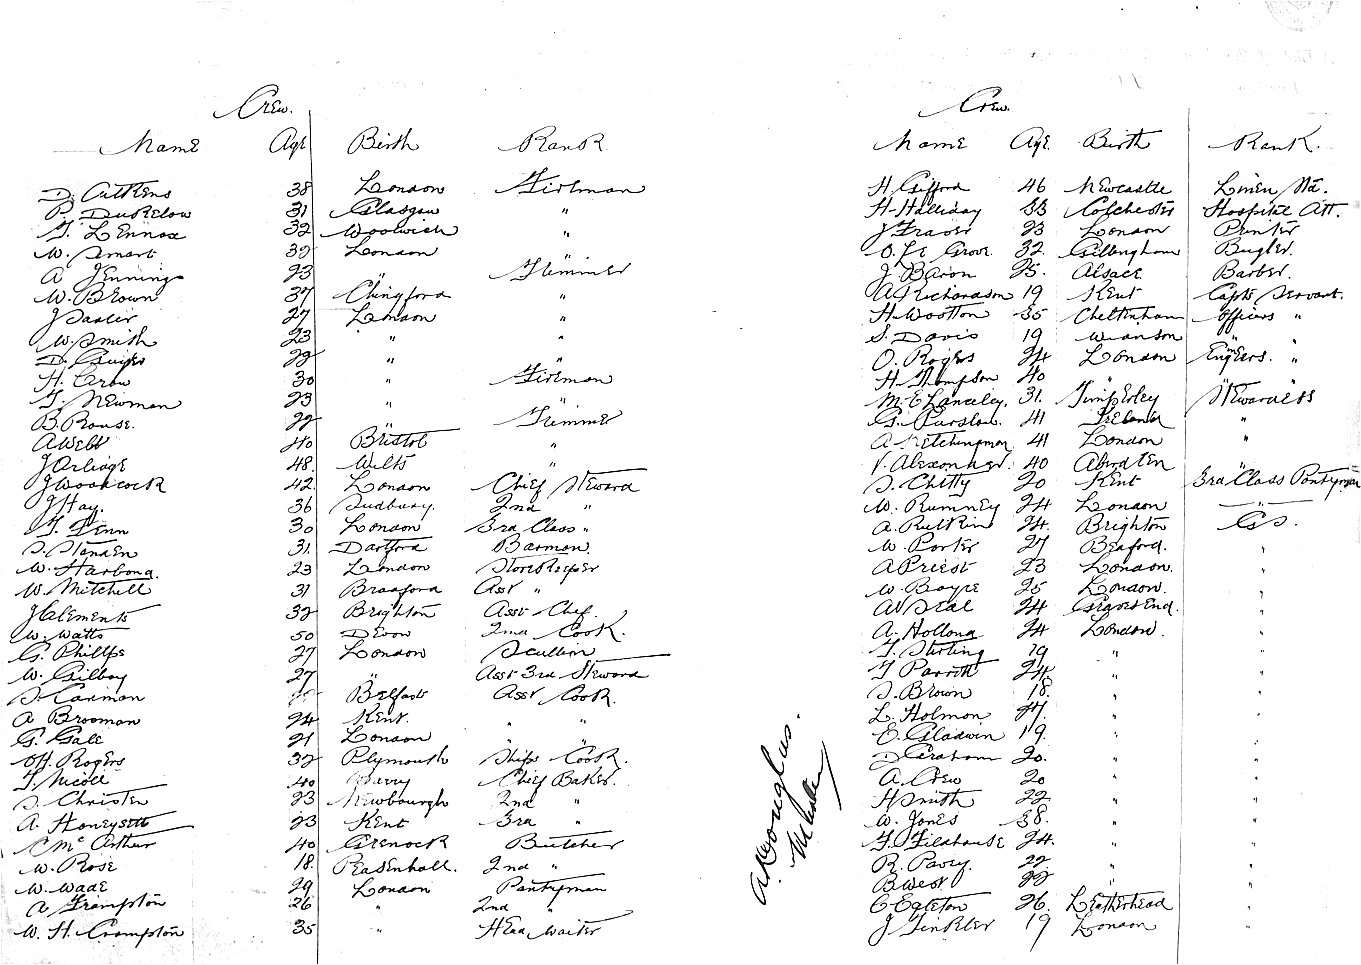 Crew.
Name Age Birth Rank
D. Cutkens 38 London Fireman
P. Dukelow 31 Glasgow "
T. Lennox 32 Woolwich "
W. Smart 32 London
A Jennings 23 " Trimmer
W. Brown 37 Chingford "
J 27 London "
W. Smith 23 " "
D. 22 "
H. Crow 30 " Fireman
T. Newman 23 "
B. Rouse. 22 " Trimmer
A Webb 40 Bristol "
J Arlidge 48. Wilts "
J Woodcock 42 London Chief Steward
J Hay. 36 Sudbury. 2nd "
T. Fenn 30 London 3rd Class "
S. Standen 31. Dartford Barman.
W. Harbord. 23 London Storekeeper
W. Mitchell 31 Bradford Asst "
J Clements 32 Brighton Asst Chef.
W. Watts 50 Devon 2nd Cook.
G. Phillps 27 London Scullion
W. Gilboy 27 " Asst 3rd Steward
S. Carman Belfast Asst Cook.
A Brooman 24 Kent. " "
G. Gale 21 London " "
W. Rogers 32 Plymouth Ships Cook.
T. Nicoll 40 Barry Chief Baker.
S. Christer 23 Newbourgh 2nd "
A. Honeysett 23 Kent 3rd "
C Mc Arthur 40 Grenock Butcher
W. Rose 18. Peasenhall. 2nd "
W. Wade 29 London Pantryman
A Frampton 26 " 2nd "
W. H. Crompton 35 " Head Waiter
A Douglas.
Master
Crew.
Name Age. Birth Rank.
H. Gifford 46 Newcastle Linen Kd.
H. Halliday 33 Colchester Hospital Att.
J Fraser 23 London Printer
O. Le Grove. 32. Gillingham Bugler.
J. Baron 25. Alsace Barber.
A Richardson 19 Kent Capts Servant.
H. Wootton 35 Cheltenham Officers "
S. Davis 19 " "
O. Rogers 24 London Engeers. "
H. Thompson 40 " "
M. E Lanceley. 31. Timperley Stewardess
G. Purslow. 41 Ireland "
A. Ketchingman 41 London "
V. Alexander. 40 Aberdeen "
S. Chitty 20 Kent 3rd Class Pantryman
W. Rumney 24 London
A. Rutkin 24. Brighton G S.
W. Porter 27 Bedford. "
A Priest 23 London. "
W. Boyce 25 London. "
A. Deal 24 Gravesend. "
A. Hollond 24 London. "
T. Stirling 19 " "
T Parrott 24. " "
S. Brown 18. " "
L. Holmon 27. " "
E. Gladwin 19. " "
D Graham 20. " "
A. Crew 20 " "
H Smith 22 " "
W. Jones 38. " "
T. Fildhouse 24. " "
R. Parry. 22 " "
B West 22 " "
C Egleton 26. Leatherhead "
J Tinkler 19 London "